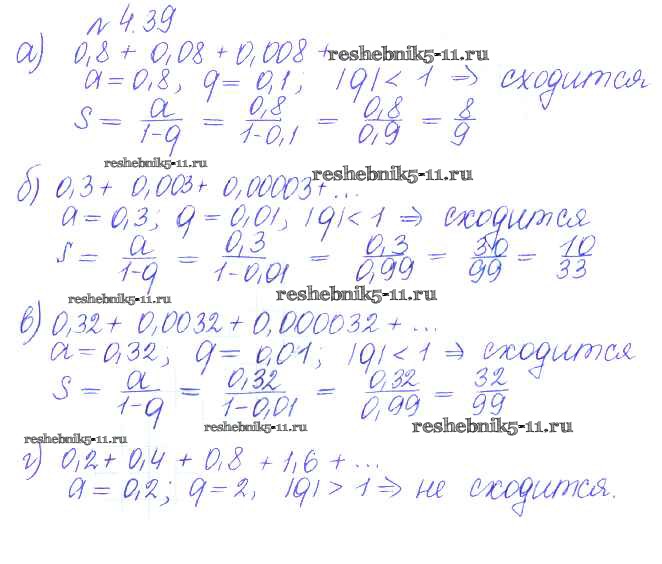 № 4.39
а) 0,8 + 0,08 + 0,008 + reshebnik5-11.ru
a = 0,8, q = 0,1; |q| < 1 ⇒ сходится
S = a/(1-q) = 0,8/(1-0,1) = 0,8/0,9 = 8/9
reshebnik5-11.ru
reshebnik5-11.ru
б) 0,3 + 0,003 + 0,00003 + ...
a = 0,3; q = 0,01, |q| < 1 ⇒ сходится
S = a/(1-q) = 0,3/(1-0,01) = 0,3/0,99 = 30/99 = 10/33
reshebnik5-11.ru
reshebnik5-11.ru
в) 0,32 + 0,0032 + 0,000032 + ...
a = 0,32; q = 0,01; |q| < 1 ⇒ сходится
S = a/(1-q) = 0,32/(1-0,01) = 0,32/0,99 = 32/99
reshebnik5-11.ru
reshebnik5-11.ru
reshebnik5-11.ru
г) 0,2 + 0,4 + 0,8 + 1,6 + ...
a = 0,2; q = 2, |q| > 1 ⇒ не сходится.